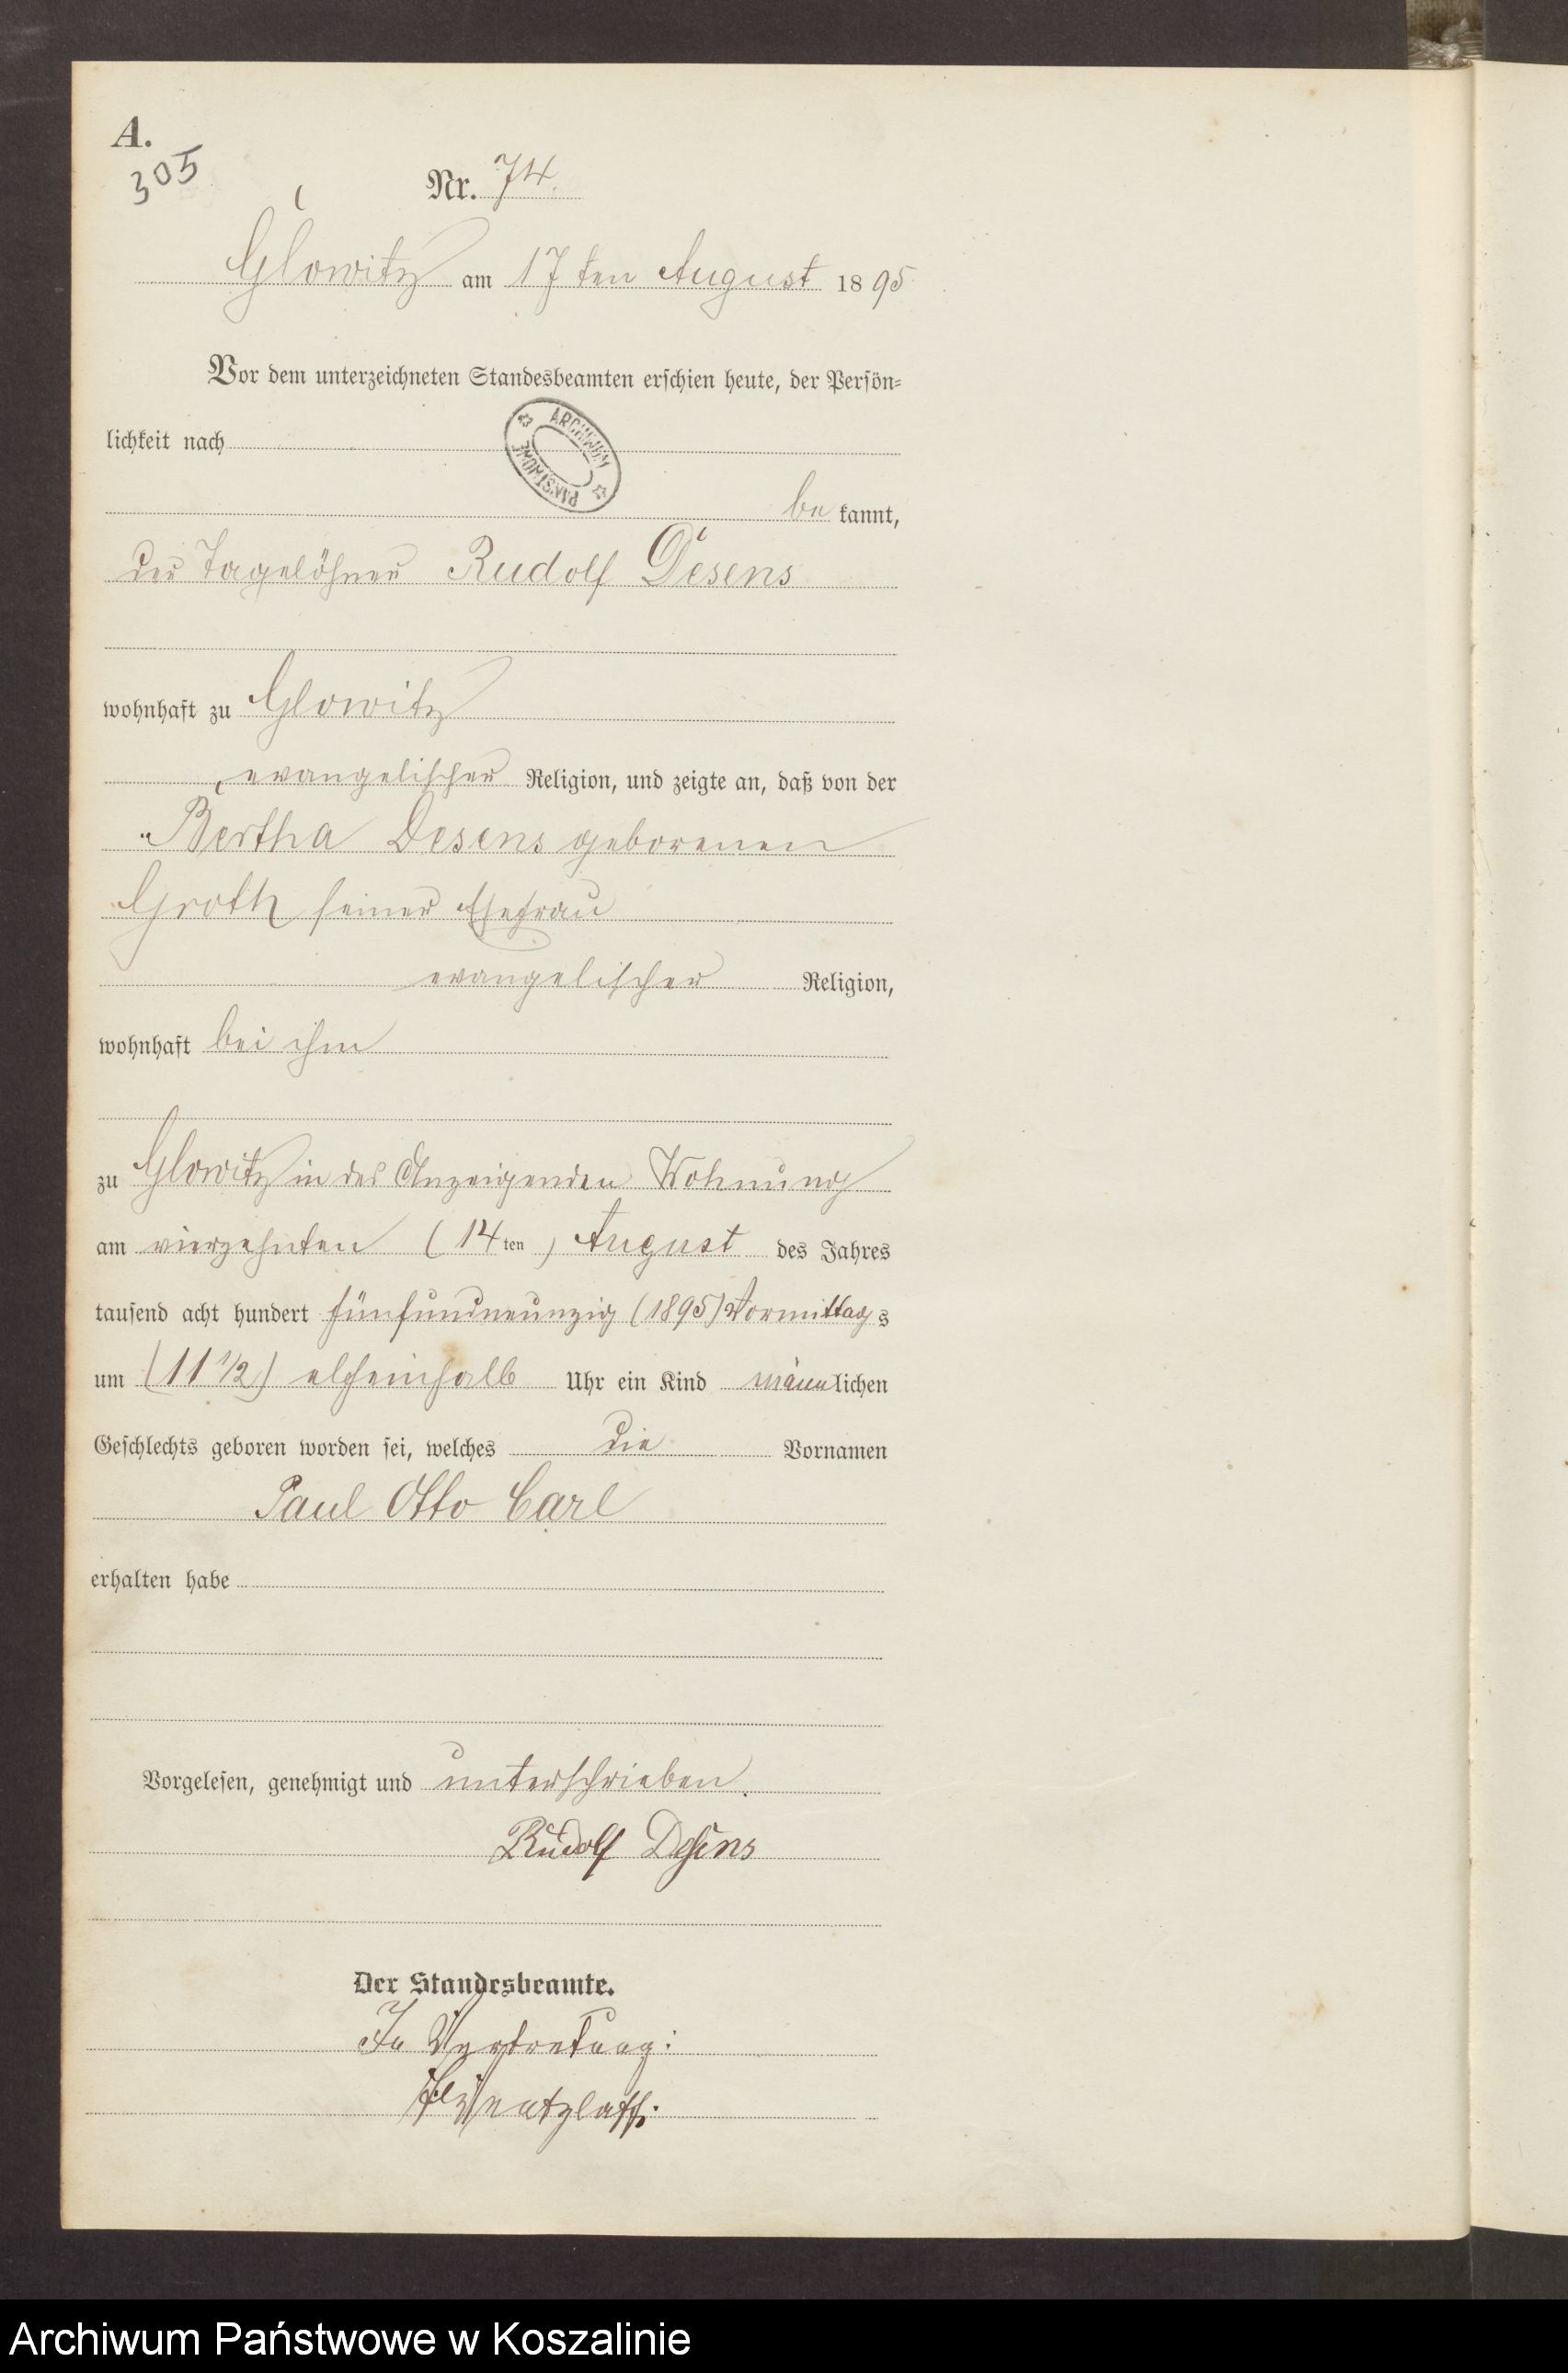 A.
305
Nr. 74.
Glowitz am 17ten August 1895
Vor dem unterzeichneten Standesbeamten erschien heute, der Persön=
lichkeit nach
ARCHIWUM PAŃSTWOWE
be kannt,
der Tagelöhner Rudolf Desens
wohnhaft zu Glowitz
evangelischer Religion, und zeigte an, daß von der
Bertha Desens geborenen
Groth seiner Ehefrau
evangelischer Religion,
wohnhaft bei ihm
zu Glowitz in des Anzeigenden Wohnung
am vierzehnten (14ten) August des Jahres
tausend acht hundert fünfundneunzig (1895) Vormittag s
um (11 1/2) elfeinhalb Uhr ein Kind männlichen
Geschlechts geboren worden sei, welches die Vornamen
Paul Otto Carl
erhalten habe
Vorgelesen, genehmigt und unterschrieben.
Rudolf Desens
Der Standesbeamte.
In Vertretung:
Archiwum Państwowe w Koszalinie